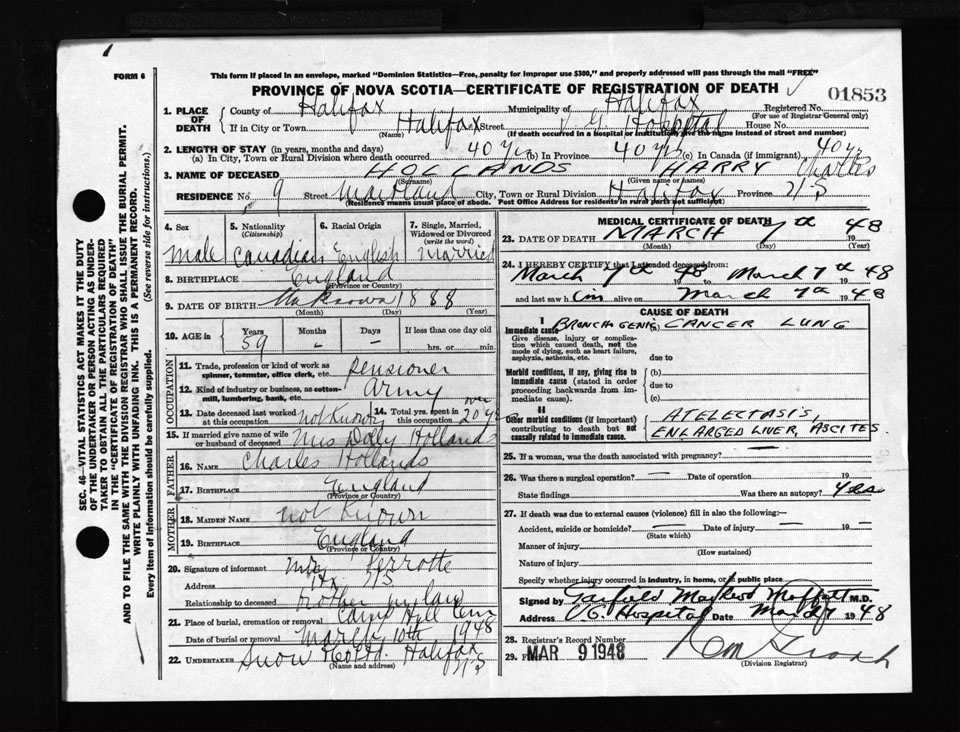 FORM 6
This form if placed in an envelope, marked "Dominion Statistics—Free, penalty for improper use $300," and properly addressed will pass through the mail "FREE"
PROVINCE OF NOVA SCOTIA—CERTIFICATE OF REGISTRATION OF DEATH
01853
1. PLACE OF DEATH
County of Halifax Municipality of Halifax Registered No.
(For use of Registrar General only)
If in City or Town Halifax Street V G Hospital House No.
(Name) (If death occurred in a hospital or institution, give the name instead of street and number)
2. LENGTH OF STAY (in years, months and days)
(a) In City, Town or Rural Division where death occurred 40 yrs (b) In Province 40 yrs (c) In Canada (if immigrant) 40 yrs
3. NAME OF DECEASED HOLLANDS HARRY Charles
(Surname) (Given name or names)
RESIDENCE No. 9 Street Maitland City, Town or Rural Division Halifax Province N S
(Residence means usual place of abode. Post Office Address for residents in rural parts not sufficient)
4. Sex Male
5. Nationality (Citizenship) Canadian
6. Racial Origin English
7. Single, Married, Widowed or Divorced (write the word) Married
8. BIRTHPLACE England
(Province or Country)
9. DATE OF BIRTH Unknown 1888
(Month) (Day) (Year)
10. AGE in Years 59 Months – Days – If less than one day old
hrs. or min.
OCCUPATION
11. Trade, profession or kind of work as spinner, teamster, office clerk, etc. Pensioner
12. Kind of industry or business, as cotton-mill, lumbering, bank, etc. Army
13. Date deceased last worked at this occupation not Known
14. Total yrs. spent in this occupation over 20 yrs
15. If married give name of wife or husband of deceased Mrs Dolly Hollands
FATHER
16. NAME Charles Hollands
17. BIRTHPLACE England
(Province or Country)
MOTHER
18. MAIDEN NAME not Known
19. BIRTHPLACE England
(Province or Country)
20. Signature of informant Mr Perrotte
Address Hx NS
Relationship to deceased brother in law
21. Place of burial, cremation or removal Camp Hill Cem
Date of burial or removal March 10th 1948
22. UNDERTAKER Snow & Co Ltd. Halifax N S
(Name and address)
MEDICAL CERTIFICATE OF DEATH
23. DATE OF DEATH MARCH 7th 1948
(Month) (Day) (Year)
24. I HEREBY CERTIFY that I attended deceased from:
March 7th 1948 to March 7th 1948
and last saw him alive on March 7th 1948
CAUSE OF DEATH
I
Immediate cause BRONCHOGENIC CANCER LUNG
Give disease, injury or complication which caused death, not the mode of dying, such as heart failure, asphyxia, asthenia, etc.
due to
Morbid conditions, if any, giving rise to immediate cause (stated in order proceeding backwards from immediate cause).
(b)
due to
(c)
II
Other morbid conditions (if important) contributing to death but not causally related to immediate cause.
ATELECTASIS
ENLARGED LIVER, ASCITES
25. If a woman, was the death associated with pregnancy?
26. Was there a surgical operation? — Date of operation — 19
State findings Was there an autopsy? Yes
27. If death was due to external causes (violence) fill in also the following:—
Accident, suicide or homicide? — Date of injury — 19 —
(State which)
Manner of injury
(How sustained)
Nature of injury
Specify whether injury occurred in industry, in home, or in public place
Signed by Garfield Moffatt M.D.
Address V.G. Hospital Date 1948
28. Registrar's Record Number
29. Filed MAR 9 1948
(Division Registrar)
SEC. 46—VITAL STATISTICS ACT MAKES IT THE DUTY
OF THE UNDERTAKER OR PERSON ACTING AS UNDER-
TAKER TO OBTAIN ALL THE PARTICULARS REQUIRED
IN THE "CERTIFICATE OF REGISTRATION OF DEATH"
AND TO FILE THE SAME WITH THE DIVISION REGISTRAR WHO SHALL ISSUE THE BURIAL PERMIT.
WRITE PLAINLY WITH UNFADING INK. THIS IS A PERMANENT RECORD.
Every item of information should be carefully supplied. (See reverse side for instructions.)